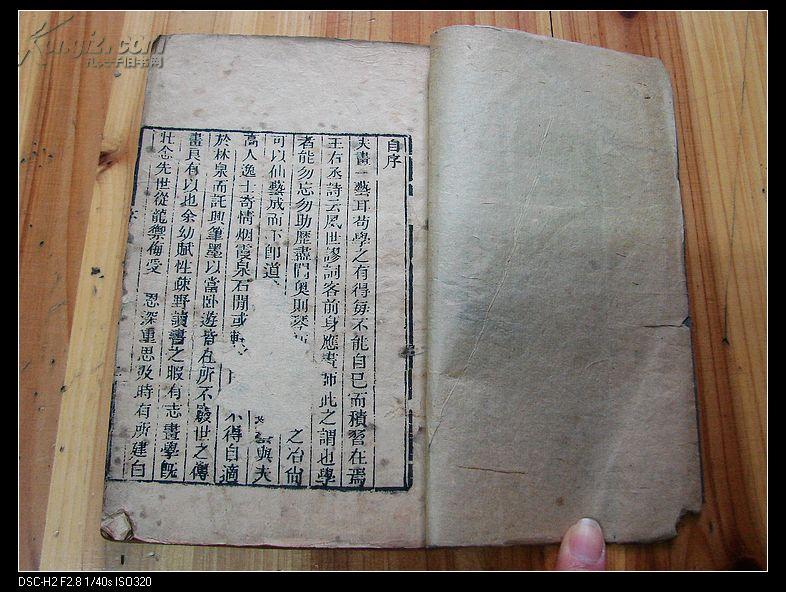 Kongfz.com
孔夫子旧书网
自序
夫畫一藝耳苟學之有得每不能自已而積習在焉
王右丞詩云夙世謬詞客前身應畫師此之謂也學
者能勿忘勿助歷盡門奧則琴 之冶尙
可以仙藝成而下卽道 與夫
高人逸士奇情烟霞泉石閒或 不得自適
於林泉而託興筆墨以當卧遊皆在所不廢世之傳
畫良有以也余幼賦性疎野讀書之暇有志畫學旣
壯念先世從龍禦侮受 恩深重思及時有所建白
DSC-H2 F2.8 1/40s ISO320